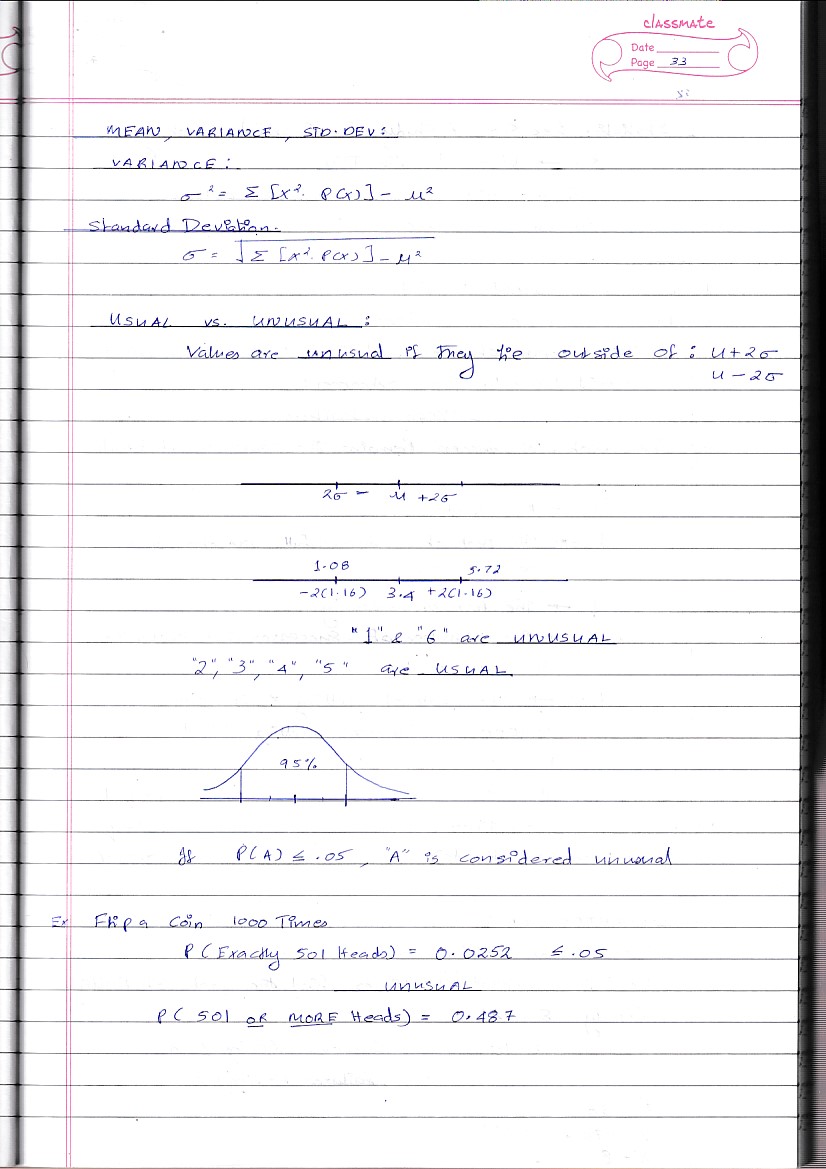 classmate
Date
Page 33
MEAN, VARIANCE, STD. DEV:
VARIANCE:
σ² = Σ [X². P(X)] - μ²
Standard Deviation.
σ = √Σ [X². P(X)] - μ²
USUAL vs. UNUSUAL:
Values are unusual if they lie outside of: μ+2σ
μ-2σ
2σ - μ +2σ
1.08 5.72
-2(1.16) 3.4 +2(1.16)
"1" & "6" are UNUSUAL
"2", "3", "4", "5" are USUAL
95%
If P(A) ≤ .05, "A" is considered unusual
Ex Flip a Coin 1000 Times
P(Exactly 501 Heads) = 0.0252 ≤ .05
UNUSUAL
P(501 OR MORE Heads) = 0.487